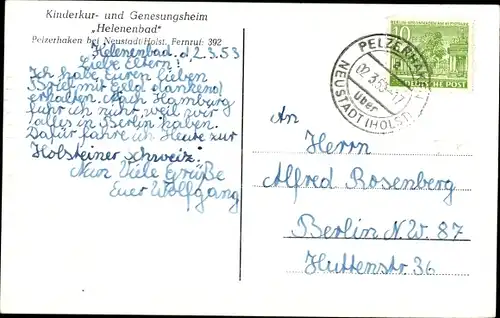 Kinderkur- und Genesungsheim
„Helenenbad"
Pelzerhaken bei Neustadt/Holst. Fernruf: 392
Helenenbad. d 2.3.53
Liebe Eltern!
Ich habe Euren lieben
Brief mit Geld dankend
erhalten. Nach Hamburg
fuhr ich nicht, weil wir
alles in Berlin haben.
Dafür fahre ich Heute zur
Holsteiner Schweiz.
Nun Viele Grüße
Euer Wolfgang
PELZERHAKEN
02.3.53-17
über
NEUSTADT (HOLST)
10
DEUTSCHE POST
An
Herrn
Alfred Rosenberg
Berlin N.W. 87
Huttenstr. 36